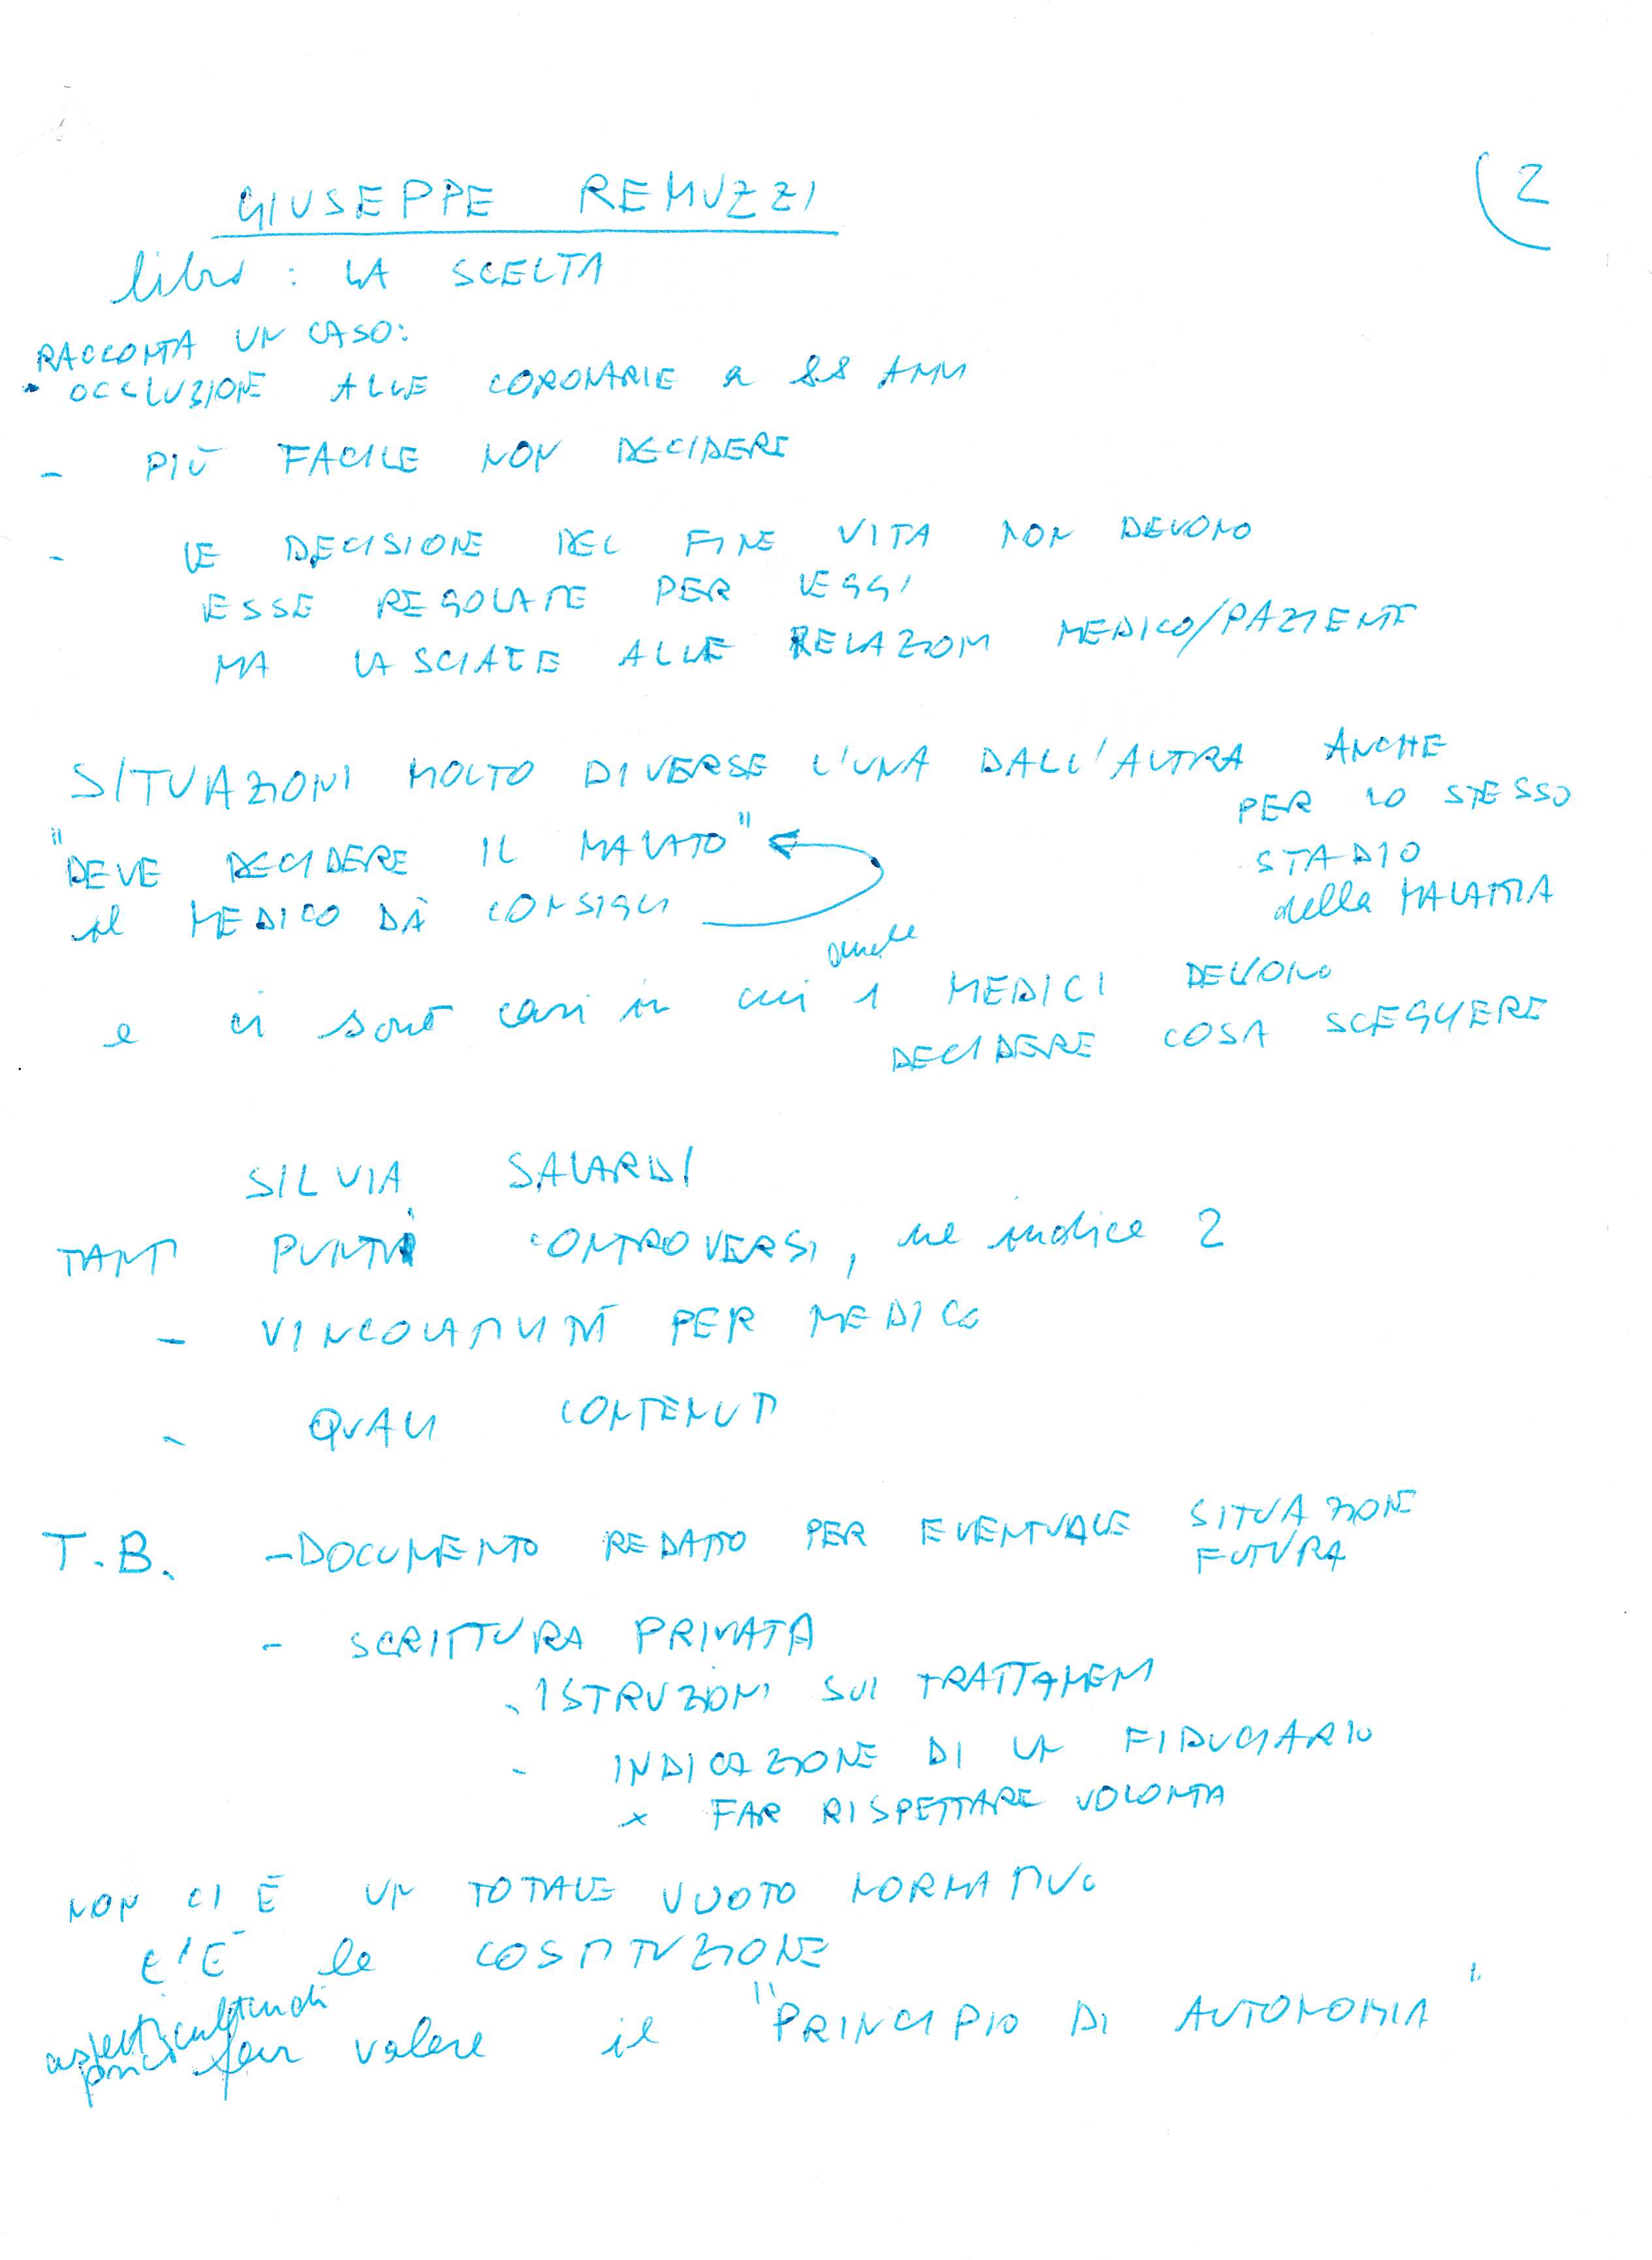 2
GIUSEPPE REMUZZI
libro : LA SCELTA
RACCONTA UN CASO:
• OCCLUZIONE ALLE CORONARIE a 88 ANNI
- PIÙ FACILE NON DECIDERE
- LE DECISIONE DEL FINE VITA NON DEVONO
ESSE REGOLATE PER LEGGI
MA LASCIATE ALLE RELAZIONI MEDICO/PAZIENTE
SITUAZIONI MOLTO DIVERSE L'UNA DALL'ALTRA ANCHE
PER LO STESSO
STADIO
della MALATTIA
"DEVE DECIDERE IL MALATO"
il MEDICO DÀ CONSIGLI
e ci sono casi in cui anche i MEDICI DEVONO
DECIDERE COSA SCEGLIERE
SILVIA SALARDI
TANTI PUNTI CONTROVERSI, ne indica 2
- VINCOLATIVITÀ PER MEDICO
- QUALI CONTENUTI
T.B. - DOCUMENTO REDATTO PER EVENTUALE SITUAZIONE
FUTURA
- SCRITTURA PRIVATA
- ISTRUZIONI SUI TRATTAMENTI
- INDICAZIONE DI UN FIDUCIARIO
x FAR RISPETTARE VOLONTÀ
NON CI È UN TOTALE VUOTO NORMATIVO
C'È la COSTITUZIONE
aspetti culturali
far valere il "PRINCIPIO DI AUTONOMIA"